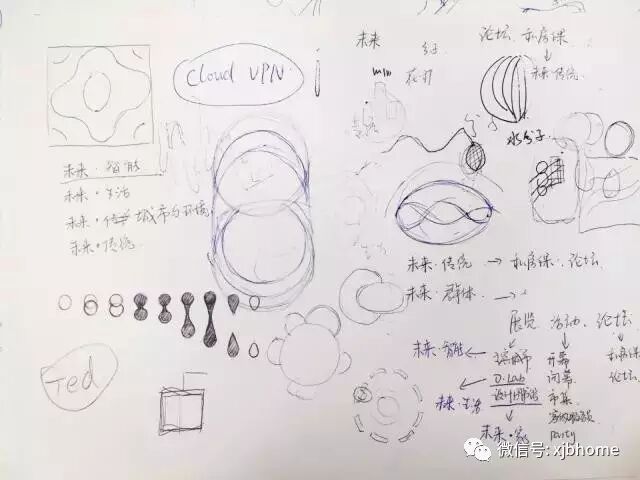 Cloud VPN
未来
论坛 私房课
花开
未来·传统
水分子
未来·智能
未来·生活
未来· 城市与环境
未来·传统
未来·传统 → 私房课·论坛
未来·群体 →
展览 活动 论坛
未来·智能 ← 开幕 私房课
D·Lab 闭幕 论坛
未来·生活 ← 设计 市集
未来·家 party
Ted
微信号: xjbhome